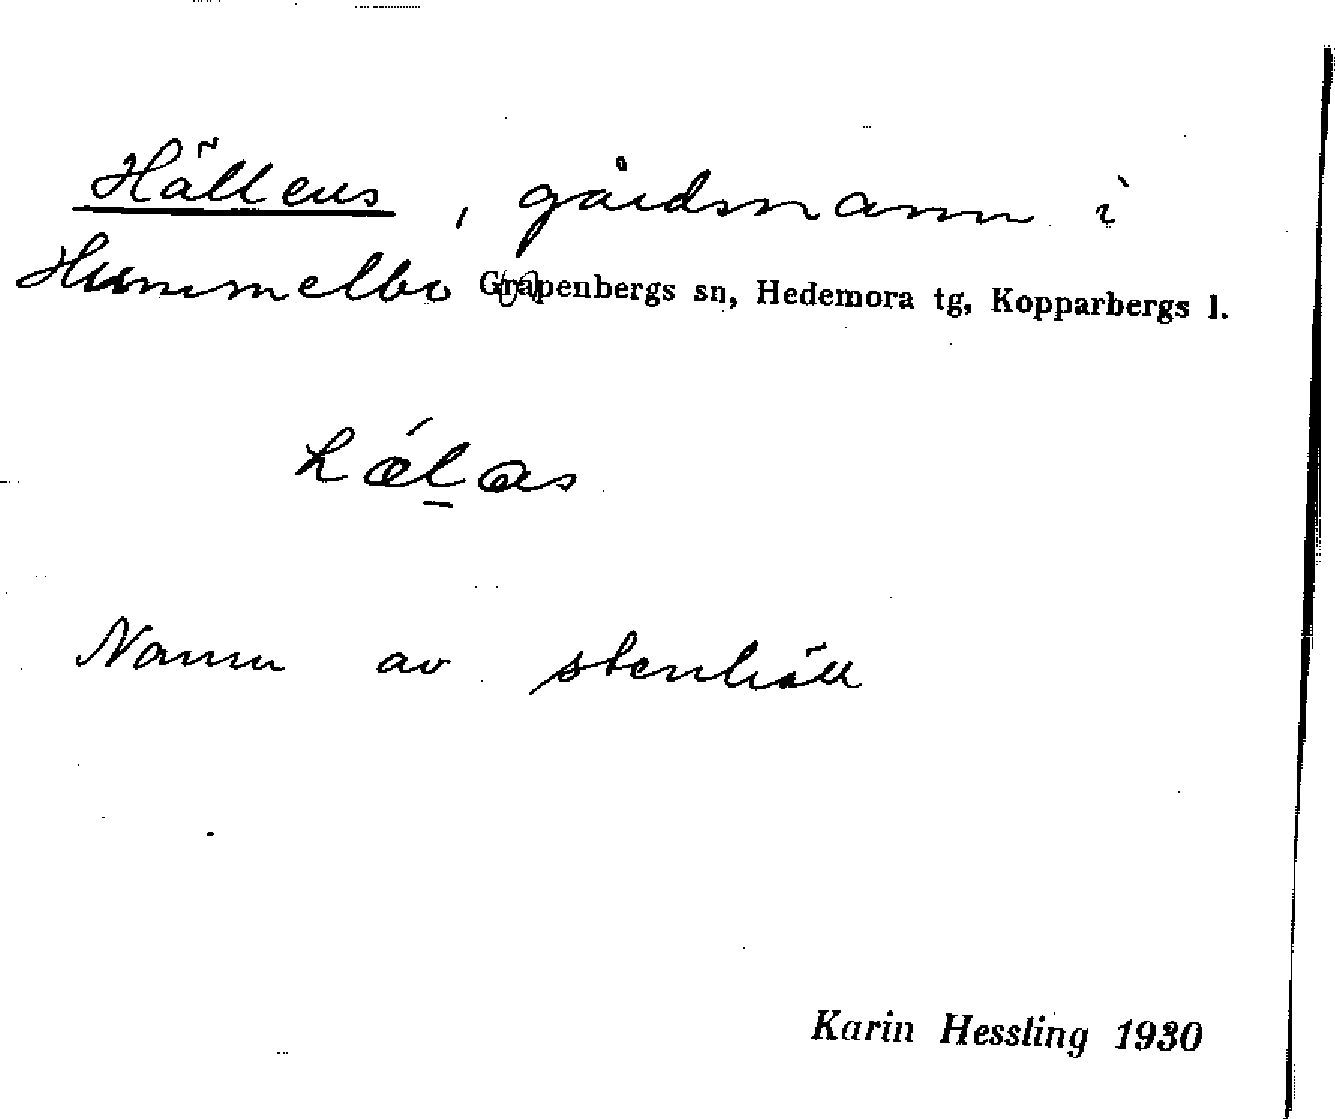 Hällens, gårdsnamn i
Hummelbo Garpenbergs sn, Hedemora tg, Kopparbergs l.
Namn av stenhäll
Karin Hessling 1930